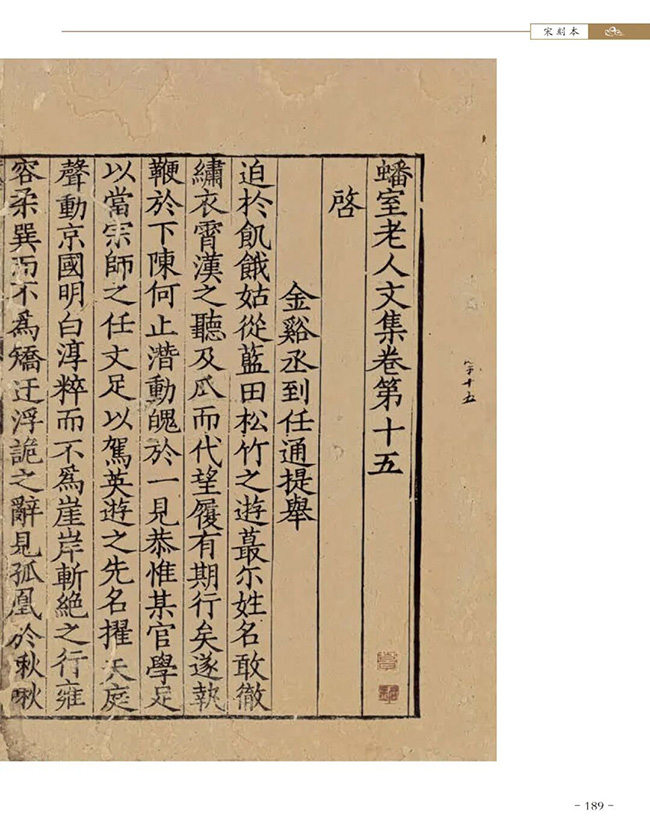 宋刻本
蟠室老人文集卷第十五
啓
金谿丞到任通提舉
迫於飢餓姑從藍田松竹之遊蕞尓姓名敢徹
繡衣霄漢之聽及瓜而代望履有期行矣遂執
鞭於下陳何止潛動魄於一見恭惟某官學足
以當宗師之任文足以駕英遊之先名擢天庭
聲動京國明白淳粹而不爲崖岸斬絶之行雍
容柔巽而不爲矯迂浮詭之辭見孤凰於啾啾
第十五
- 189 -